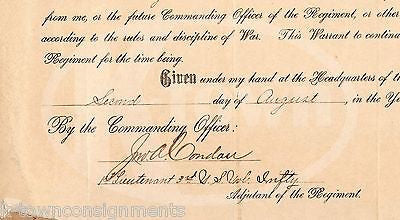 from me, or the future Commanding Officer of the Regiment, or other
according to the rules and discipline of War. This Warrant to continu
Regiment for the time being.
Given under my hand at the Headquarters of the
Second day of August, in the Ye
By the Commanding Officer:
Jno A Condon
1st Lieutenant 3rd U. S. Vol. Infty
Adjutant of the Regiment.
k-townconsignments